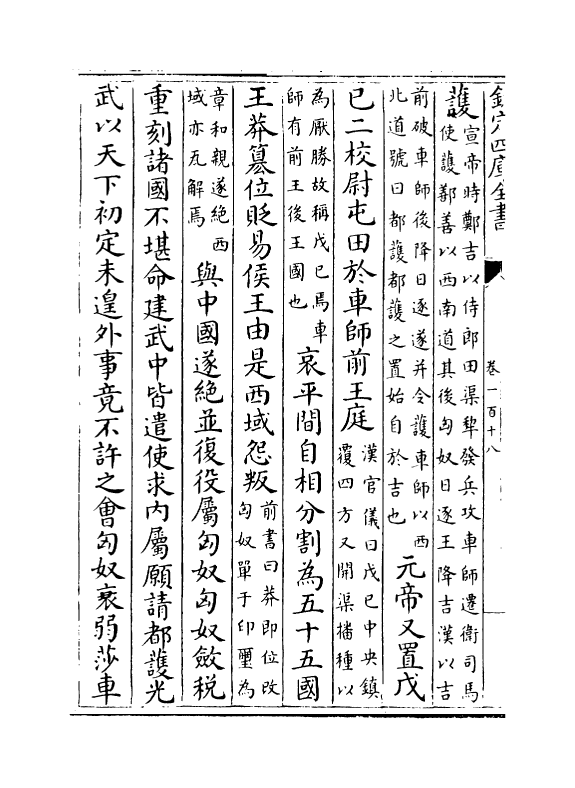 欽定四庫全書
卷一百十八
護
宣帝時鄭吉以侍郎田渠犂發兵攻車師遷衛司馬
使護鄯善以西南道其後匈奴日逐王降吉漢以吉
前破車師後降日逐遂并令護車師以西
北道號曰都護都護之置始自於吉也
元帝又置戊
已二校尉屯田於車師前王庭
漢官儀曰戊已中央鎮
覆四方又開渠播種以
為厭勝故稱戊已焉車
師有前王後王國也
哀平間自相分割為五十五國
王莽篡位貶易侯王由是西域怨叛
前書曰莽即位改
匈奴單于印璽為
章和親遂絶西
域亦瓦解焉
與中國遂絶並復役屬匈奴匈奴斂税
重刻諸國不堪命建武中皆遣使求内屬願請都護光
武以天下初定未遑外事竟不許之會匈奴衰弱莎車